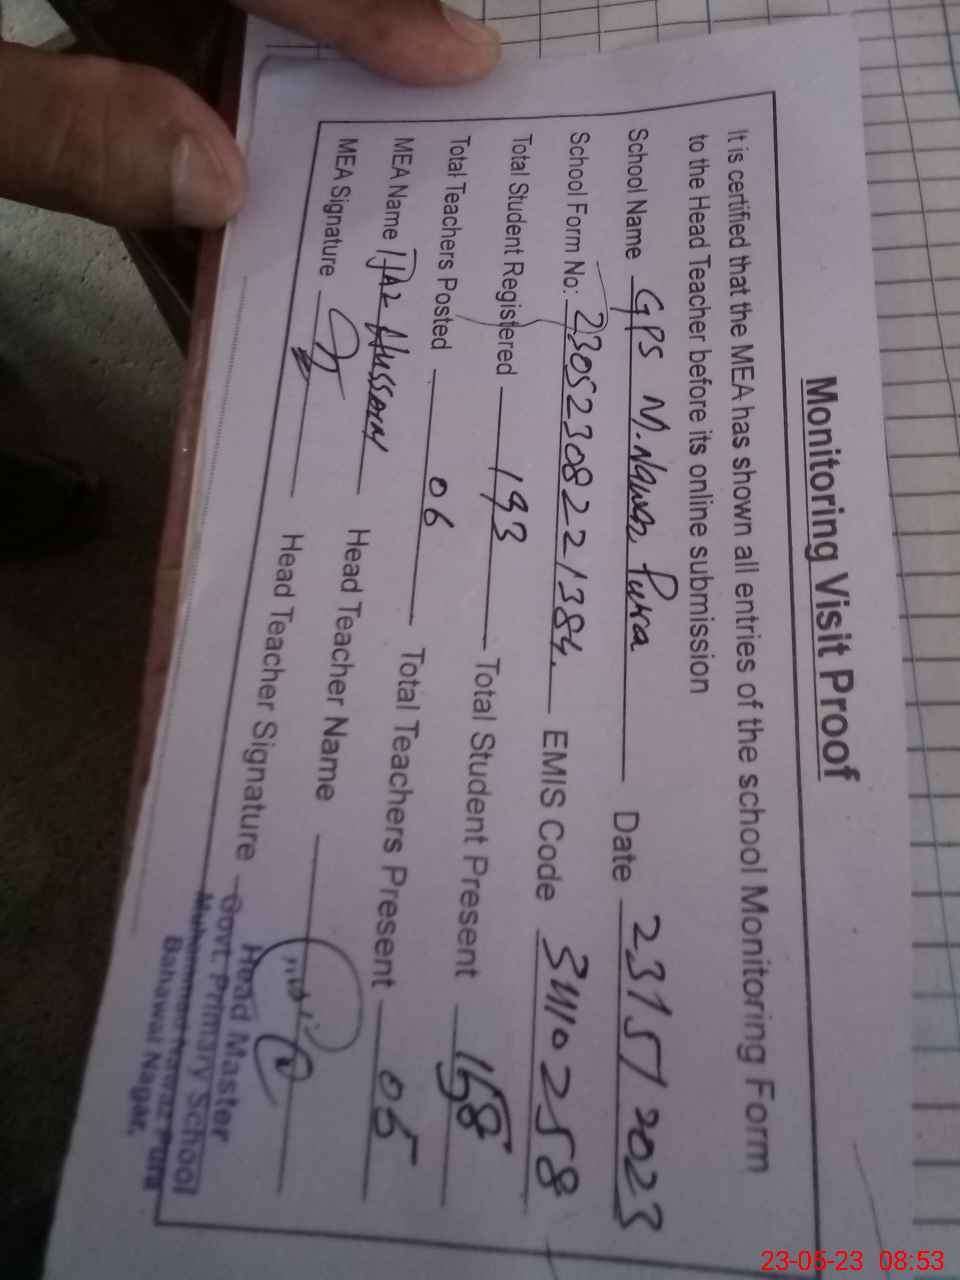 Monitoring Visit Proof
It is certified that the MEA has shown all entries of the school Monitoring Form
to the Head Teacher before its online submission
School Name GPS M.Nawaz Pura Date 23/5/2023
School Form No: 23052308221384. EMIS Code 31110258
Total Student Registered 193 Total Student Present 158
Total Teachers Posted 06 Total Teachers Present 05
MEA Name IJAZ HUSSAIN Head Teacher Name
MEA Signature Head Teacher Signature
Head Master
Govt. Primary School
Muhammad Nawaz Pura
Bahawal Nagar.
23-05-23 08:53